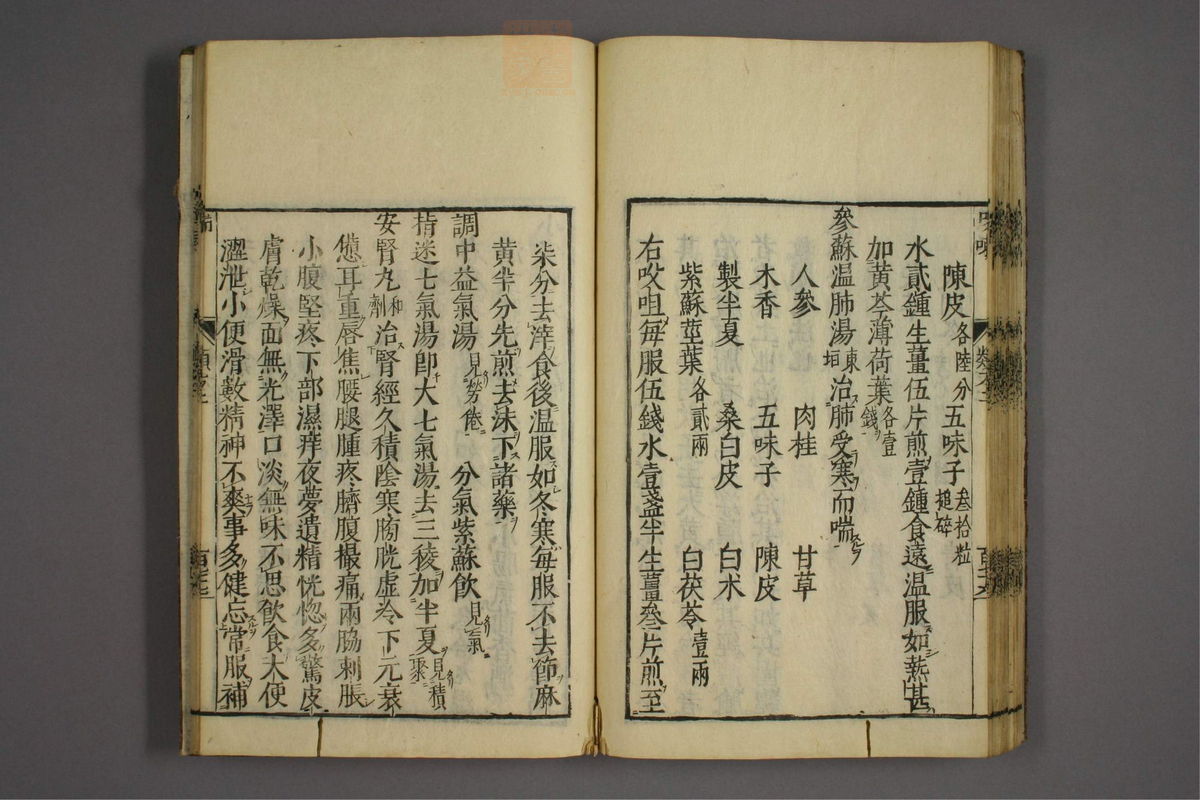 陳皮各陸分五味子叁拾粒搥碎
水貳鍾生薑伍片煎壹鍾食遠溫服如熱甚
加黄芩薄荷葉各壹錢
參蘇温肺湯東垣治肺受寒而喘
人參 肉桂 甘草
木香 五味子 陳皮
製半夏 桑白皮 白术
紫蘇莖葉各貳兩 白茯苓壹兩
右㕮咀每服伍錢水壹盞半生薑叁片煎至
柒分去滓食後温服如冬寒每服不去節麻
黄半分先煎去沬下諸藥
調中益氣湯見勞倦 分氣紫蘇飲見氣
指迷七氣湯卽大七氣湯去三稜加半夏見積聚
安腎丸和劑治腎經久積陰寒膀胱虛冷下元衰
憊耳重唇焦腰腿腫疼臍腹撮痛兩脇刺脹
小腹堅疼下部濕痒夜夢遺精恍惚多驚皮
膚乾燥面無光澤口淡無味不思飲食大便
溏泄小便滑數精神不爽事多健忘常服補